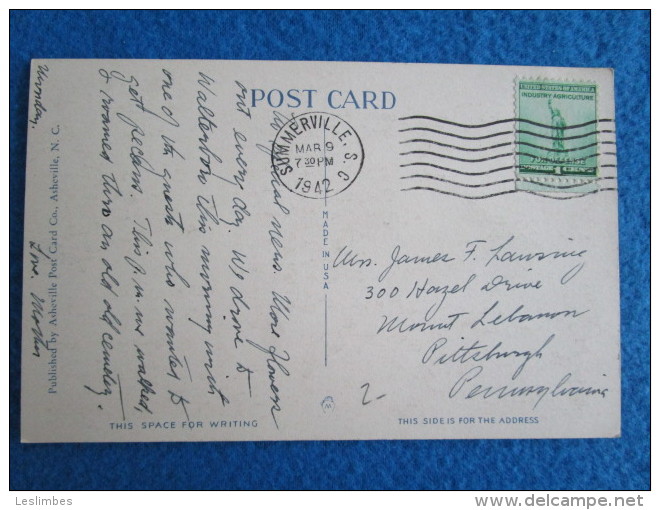 POST CARD
SUMMERVILLE, S.C.
MAR 9
7 30 PM
1942
UNITED STATES OF AMERICA
INDUSTRY AGRICULTURE
1
Monday.
No special news. More flowers
out every day. We drove to
Walterboro this morning with
one of the guests who wanted to
get pecans. This P.M. we walked,
& roamed thru an old old cemetery.
Love. Mother
Mrs. James F. Lansing
300 Hazel Drive
Mount Lebanon
Pittsburgh
Pennsylvania
2-
MADE IN USA
Published by Asheville Post Card Co., Asheville, N. C.
THIS SPACE FOR WRITING
THIS SIDE IS FOR THE ADDRESS
Leslimbes
delcampe.net